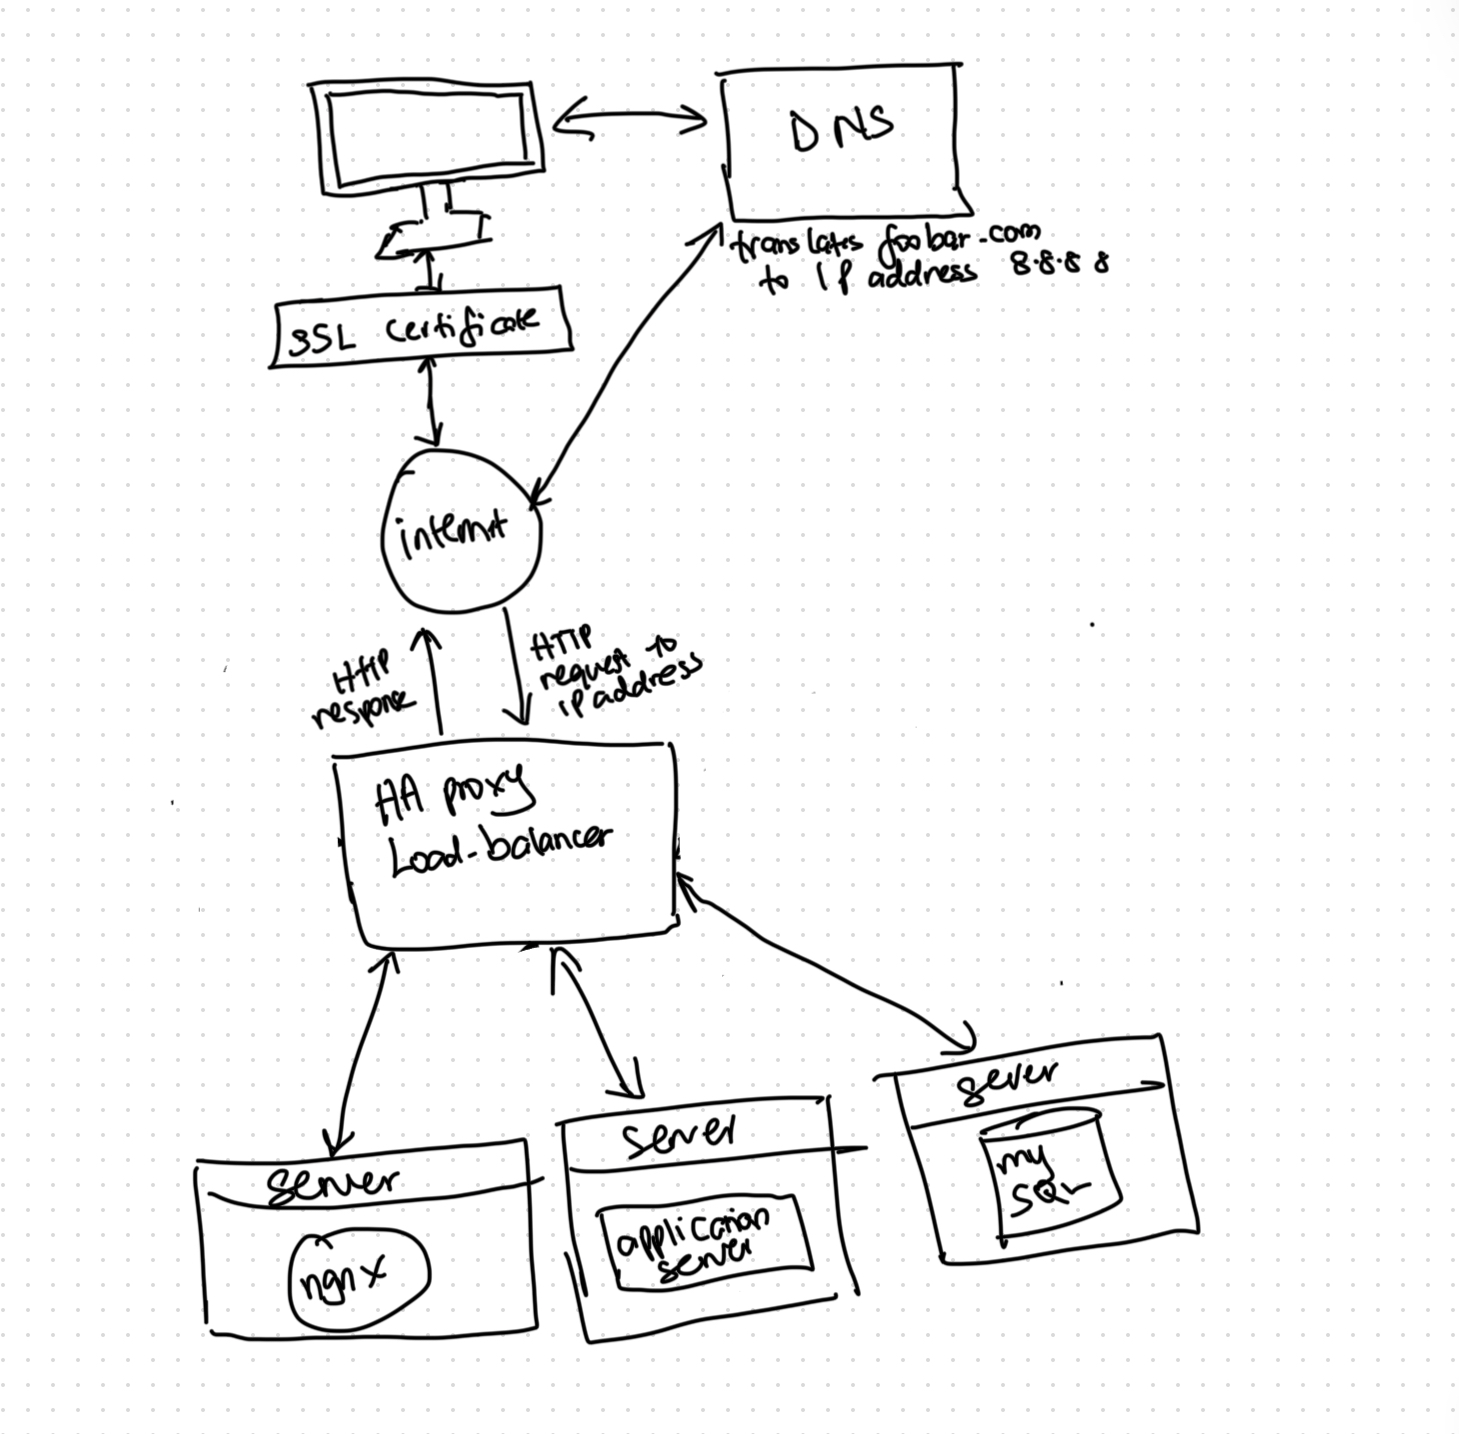 DNS
translates foobar.com
to IP address 8.8.8 8
SSL certificate
internet
HTTP
response
HTTP
request to
ip address
HA proxy
Load-balancer
server
ngnx
server
application
server
sever
my
SQL